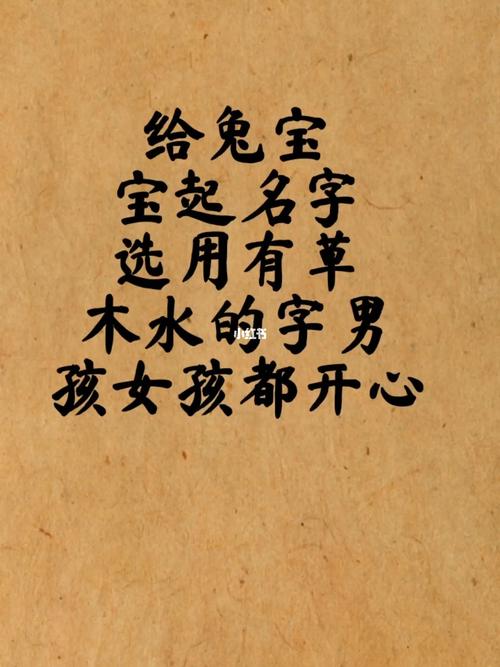 给兔宝
宝起名字
选用有草
木水的字男
小红书
孩女孩都开心